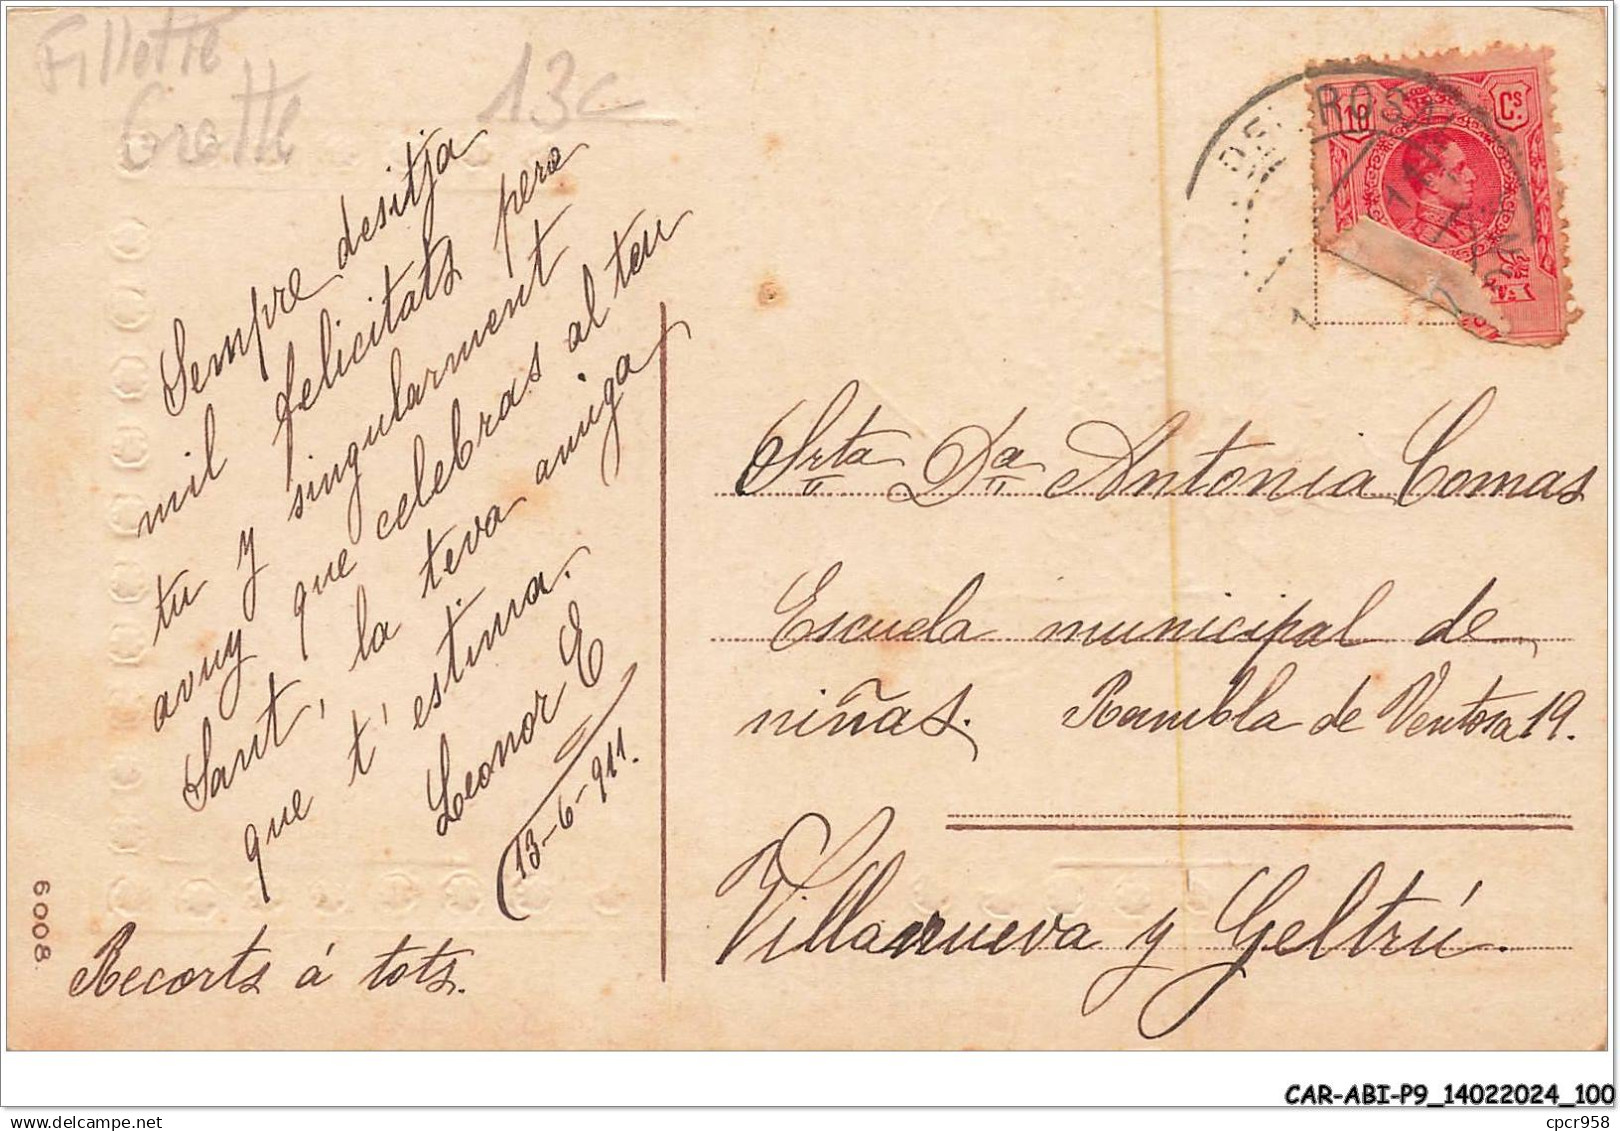 Fillette
13c
Sempre desitja
mil felicitats pera
tu y singularment
avuy que celebras al teu
Sant, la teva amiga
que t' estima.
Leonor E
13-6-911.
Recorts á tots.
6008
10 Cs.
Srta Da Antonia Comas
Escuela municipal de
niñas. Rambla de Ventosa 19.
Villanueva y Geltrú.
CAR-ABI-P9_14022024_100
cpcr958